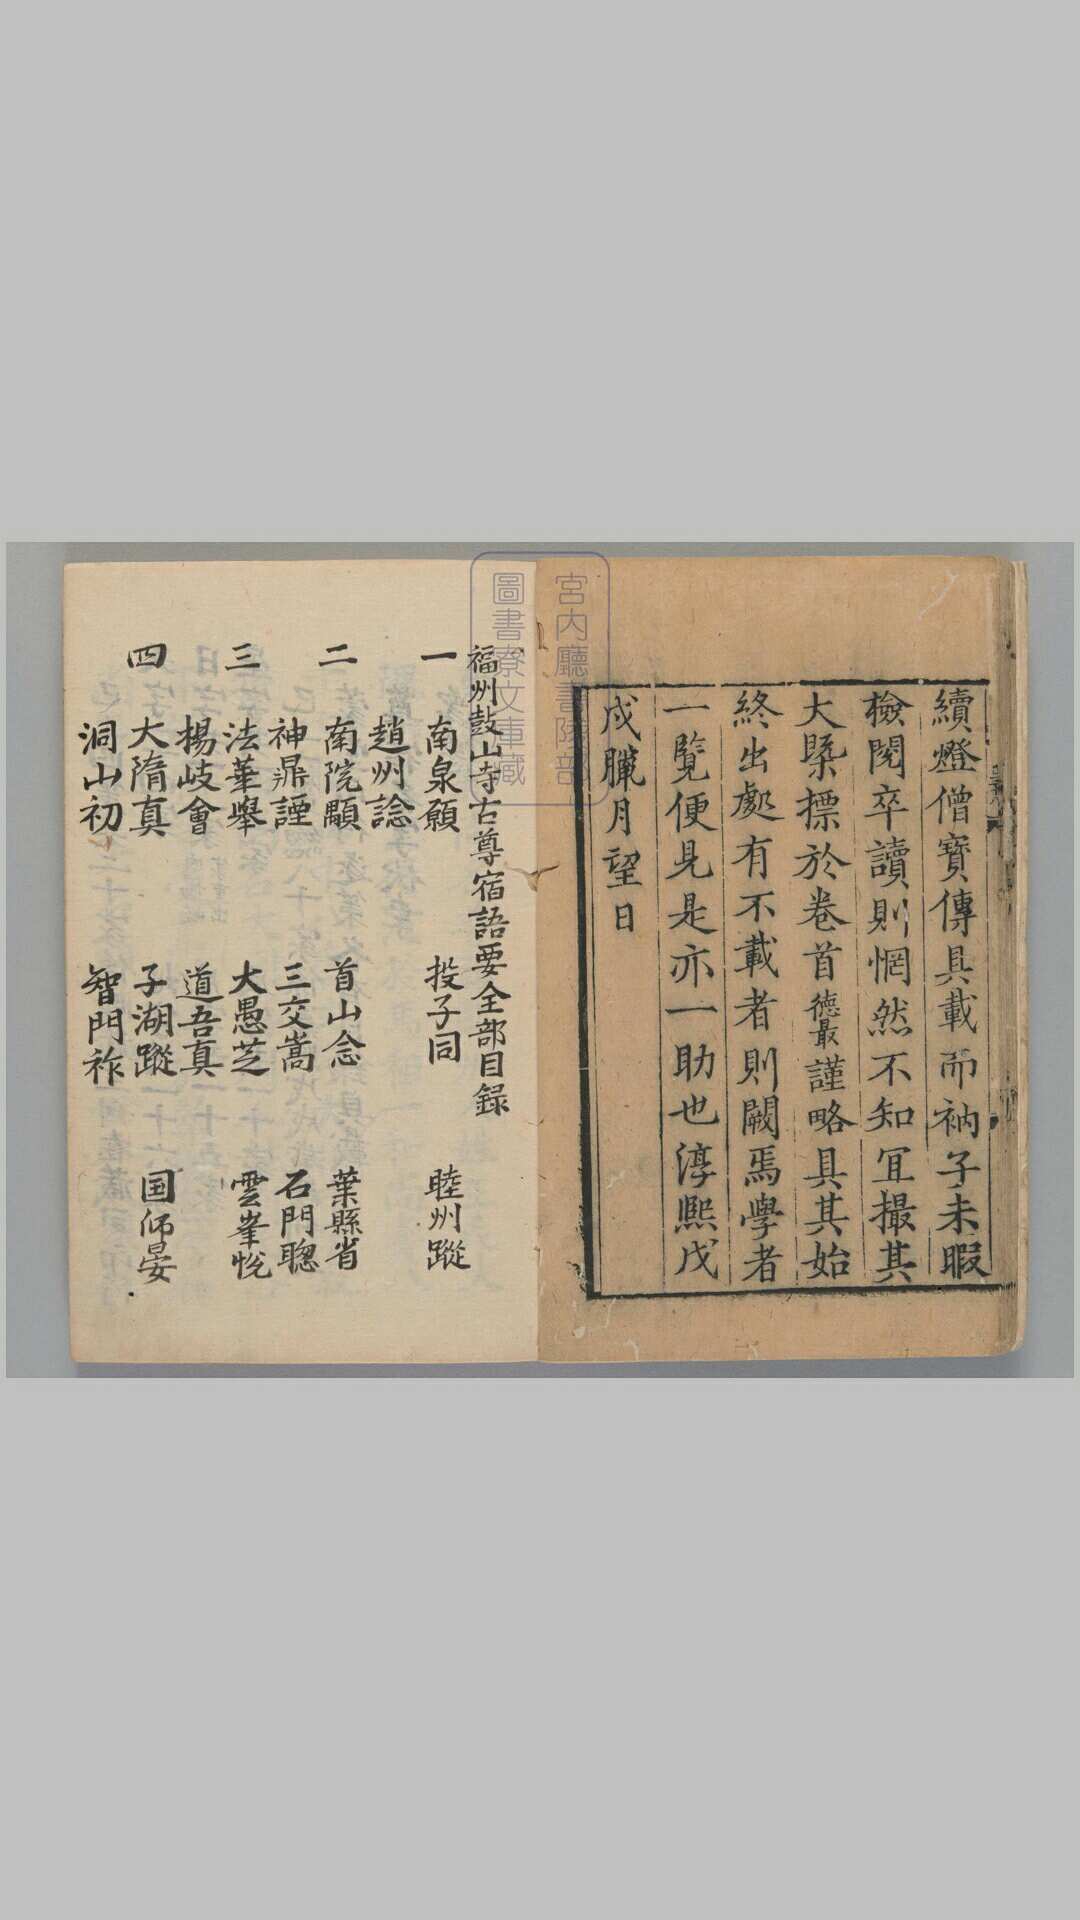 續燈僧寶傳具載而衲子未暇
檢閱卒讀則惘然不知冝撮其
大槩摽於卷首德最謹略具其始
終出處有不載者則闕焉學者
一覧便見是亦一助也淳熙戊
戍臘月望日
宮内廳書陵部
圖書寮文庫藏
福州鼓山寺古尊宿語要全部目録
一 南泉願 投子同 睦州蹤
趙州諗
二 南院顒 首山念 葉縣省
神鼎諲 三交嵩 石門聰
三 法華舉 大愚芝 雲峯悦
楊岐會 道吾真
四 大隋真 子湖蹤 国师晏
洞山初 智門祚